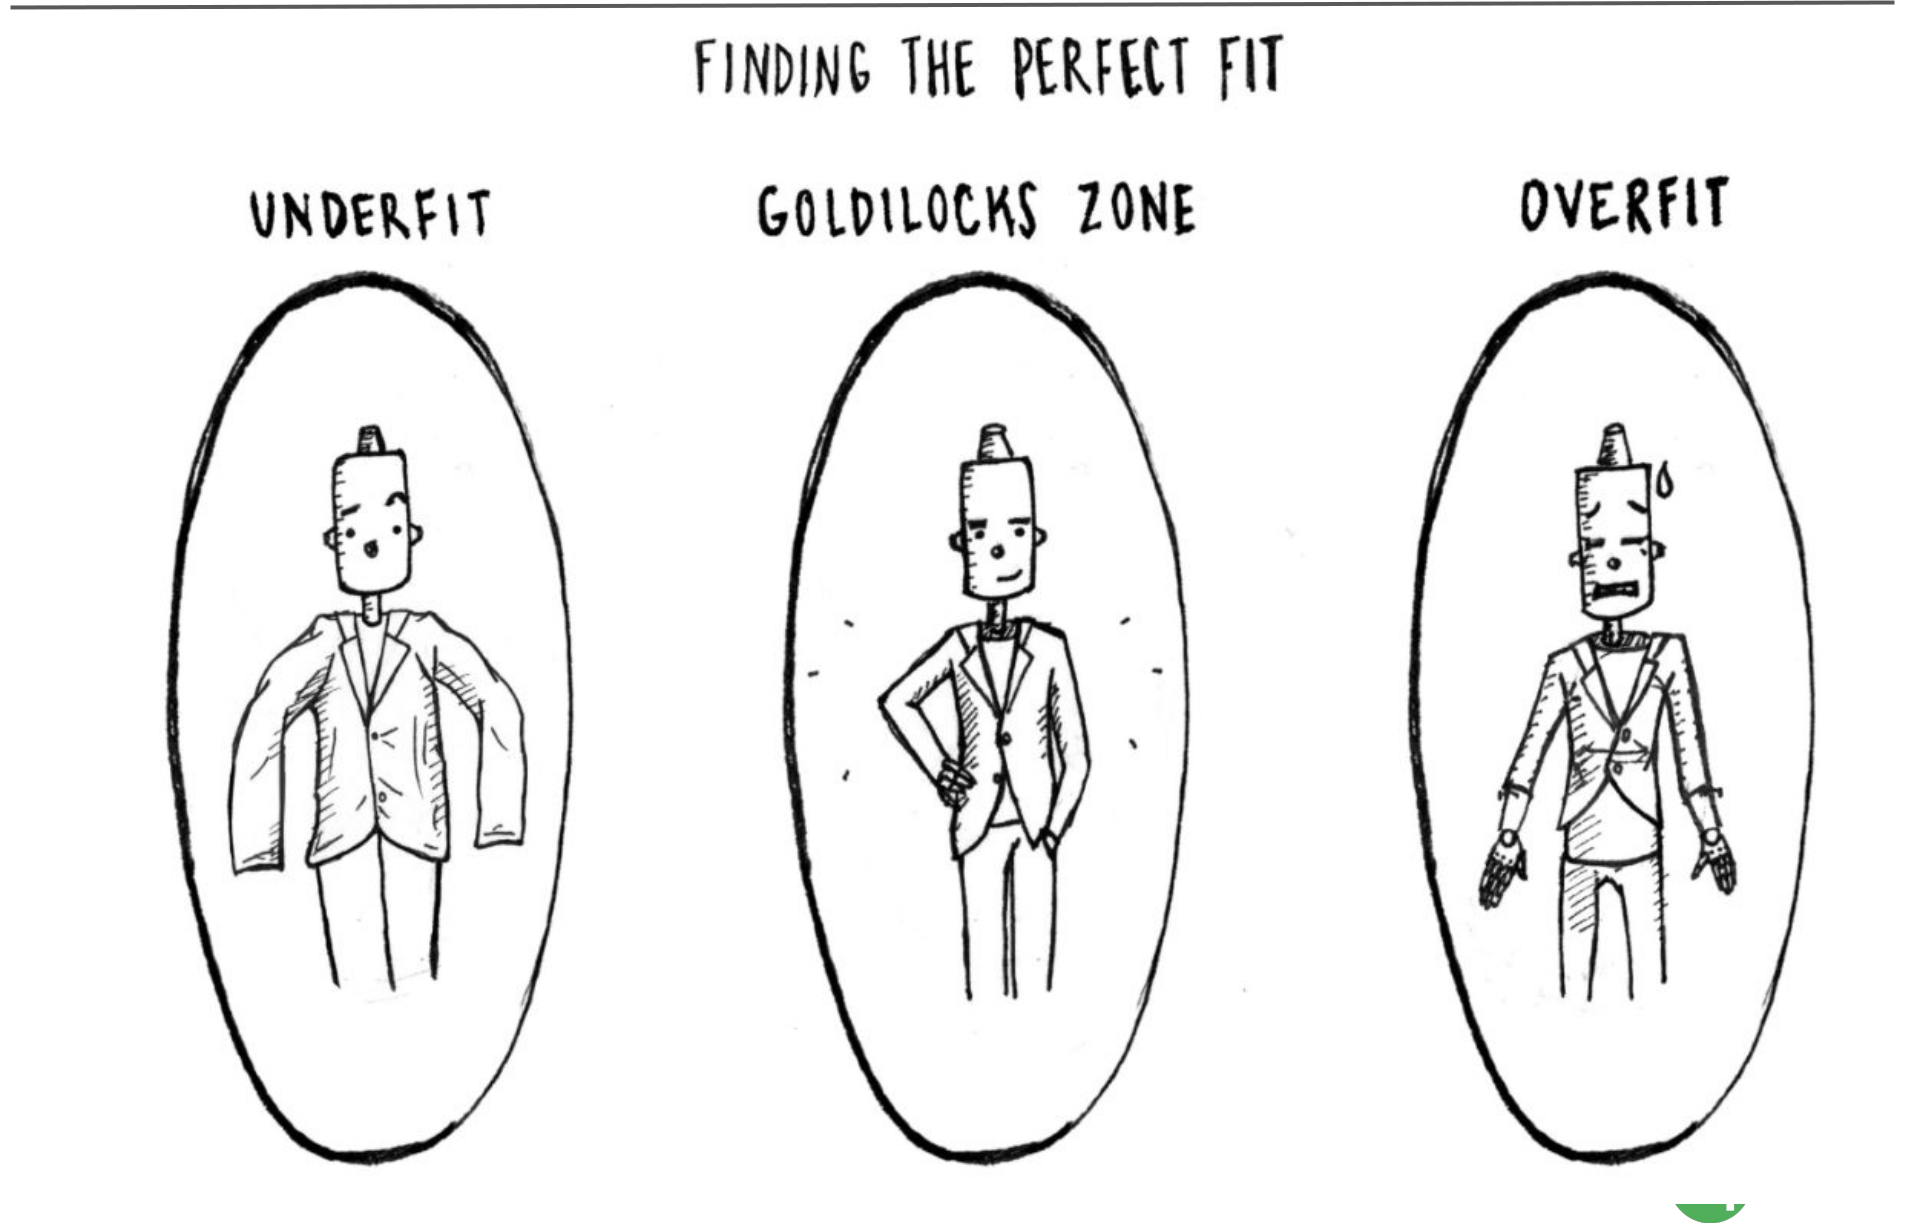 FINDING THE PERFECT FIT
UNDERFIT
GOLDILOCKS ZONE
OVERFIT